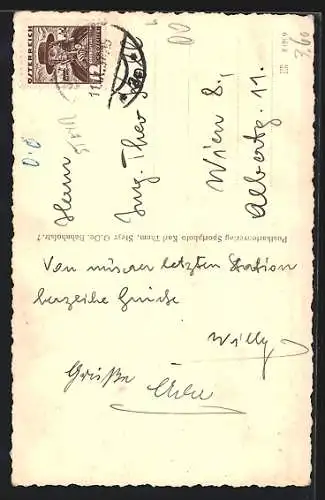 ÖSTERREICH
Herrn
Ing. Theo
Wien 8.,
Albertg. 11.
Postkartenverlag Sportphoto Karl Thom, Steyr O.Oe. Bahnhofstr. 7
Von unserer letzten Station
herzliche Grüße
Willy
Grüße
3,60